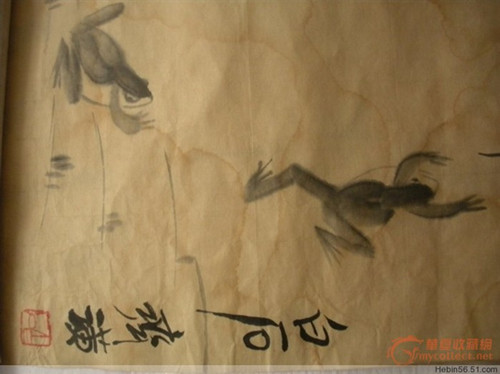 白石齊璜
華夏收藏網
mycollect.net
Hebin56.51.com